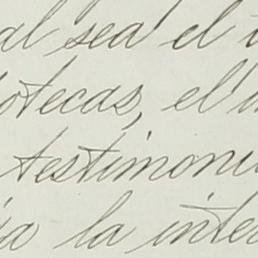 al sea el
otecas, el
testimoni
la inte